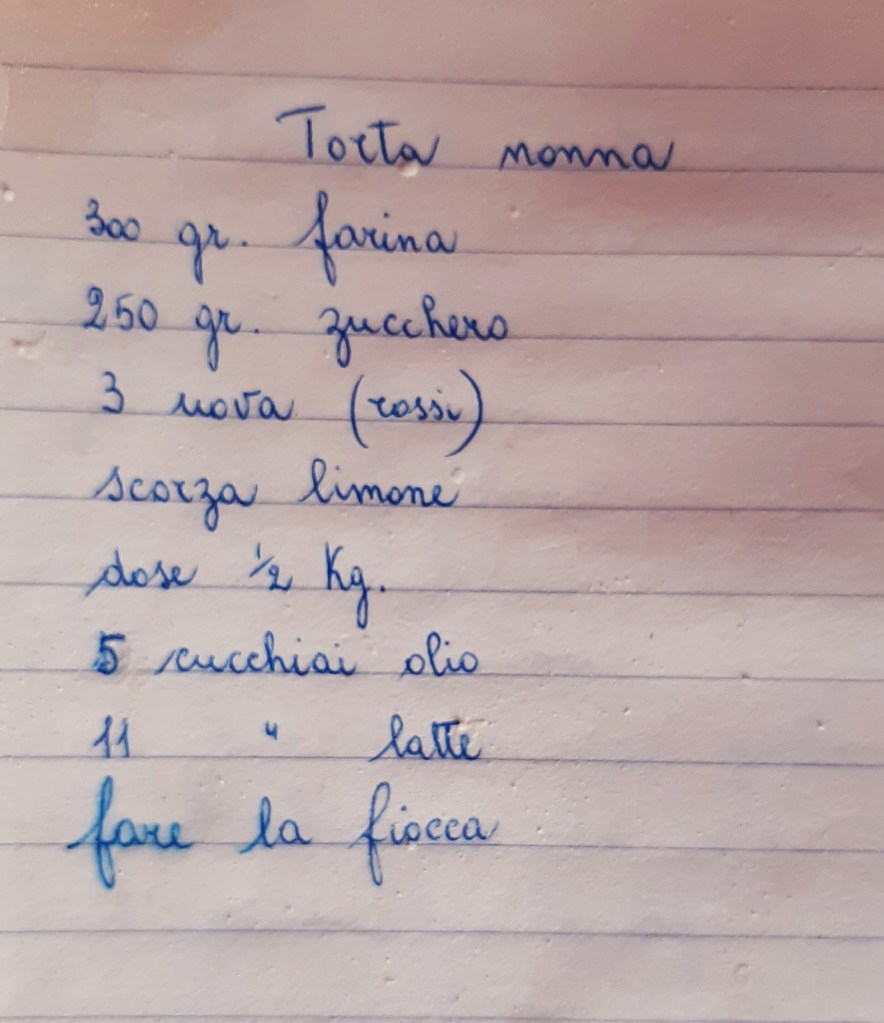 Torta nonna
300 gr. farina
250 gr. zucchero
3 uova (rossi)
scorza limone
dose 1/2 Kg.
5 cucchiai olio
11 " latte
fare la fiocca